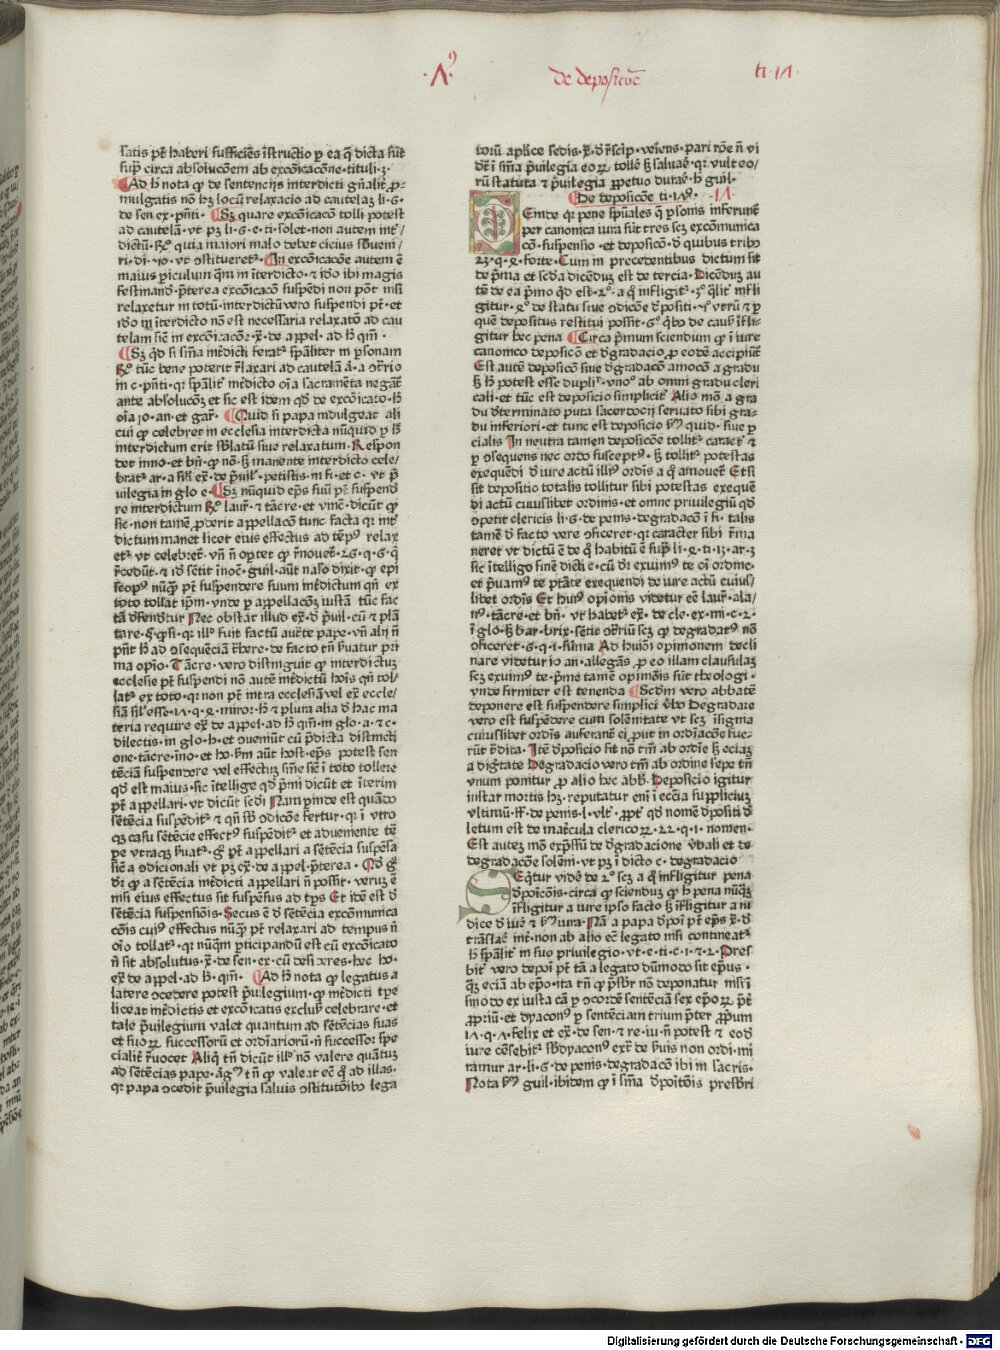 ·Λ·⁹ de deposicōe ti·iΛ·
satis pt̄ haberi sufficiēs īstructio ꝑ ea q̄ dicta sūt
sup̄ circa absolucōem ab excōicacōne·tituli·3·
Ad h̄ nota ꝙ de sentencijs interdicti gn̄alit̄ ꝓ-
mulgatis nō hꝫ locū relaxacio ad cautelaꝫ li·6·
de sen ex·pn̄ti· Sꝫ quare excōicacō tolli potest
ad cautelā·vt pꝫ li·6·e·ti·solet·non autem int̄/
dictū·R̄° quia maiori malo debet cicius sb̄veni/
ri·di·10·vt ↄstitueret᷑· In excōicacōne autem ē
maius ꝑiculum qm̄ in īterdicto·⁊ idō ibi magis
festinand̄·p̄terea excōicacō suspēdi non pōt nisi
relaxetur in totū·interdictū vero suspendi pt̄·et
idō in īterdicto nō est necessaria relaxatō ad cau
telam sic̄ in excōicacōe·ex̄·de appel·ad h̄ qm̄·
Sꝫ qd̄ si sn̄ia int̄dicti ferat᷑ sp̄aliter in ꝑsonam
R̄° tūc bene poterit r̄laxari ad cautelā
in c·pn̄ti·qꝛ sp̄alit̄ int̄dicto oīa sacramēta negāt᷑
ante absolucōꝫ et sic est idem qd̄ de excōicato·h̄
oīa io·an·et gar̄· Quid si papa indulgeat ali
cui ꝙ celebret in ecclesia interdicta nūquid ꝑ h̄
interdictum erit sb̄latū siue relaxatum· Respon
det inno·et bn̄·ꝙ nō·sꝫ manente interdicto cele/
brat᷑·ar·a sil̄i ex̄·de p̄uil̄·petistis·in fi·et c·vt p̄
uilegia in glo e· Sꝫ nūquid ep̄s suū pt̄ suspend̄
re interdictum R̄° laur̄·⁊ tācre·et vinc̄·dicūt ꝙ
sic·non tamē ꝓderit appellacō tunc facta qꝛ int̄
dictum manet licet eius effectus ad tēpꝰ relax
et᷑
r̄cedūt·⁊ id̄ sētit īnoc̄·guil·aūt naso dixit·ꝙ epi
scopꝰ nūqꝫ pt̄ suspendere suum int̄dictum qn̄ ex
toto tollat ip̄m·vnde ꝑ appellacōꝫ iustā tūc fac
tā d̄fend̄tur Nec obstat illud ex̄·d̄ p̄uil·cū ⁊ plā
tare·§·ꝙ si·qꝛ illꝰ fuit factū aucte pape·vn̄ alij n̄
pn̄t h̄ ad ↄsequēciā t̄here·de facto tn̄ ẜuatur pri
ma opīo· Tācre·vero distinguit ꝙ interdictuꝫ
ecclesie pt̄ suspendi nō autē int̄dictū hoīs qn̄ tol/
lat᷑ ex toto·qꝛ non pt̄ intra ecclesiā vel ex̄ eccle/
siā sil̄ esse·
teria require ex̄ de appel·ad h̄ qm̄·in glo·a·⁊ c·
dilectis·in glo·h·et ↄueniūt cū p̄dicta distincti
one·tācre·īno·et ho·ẜm aūt host·ep̄s potest sen
tēciā suspendere vel effectuꝫ sn̄ie sic̄ ī toto tollere
qd̄ est maius·sic ītellige qd̄ p̄mi dicūt et īterim
pt̄ appellari·vt dicūt sc̄di Nam ꝓinde est quādo
sētēcia suspēdit᷑ ⁊ qn̄ sb̄ ↄdicōne fertur·qꝛ ī vtro
qꝫ casu sētēcie effectꝰ suspēdit᷑ et adueniente tē
ꝑe vtraqꝫ ẜuat᷑·gͦ pt̄ appellari a sētēcia suspēsa
sic̄ a ↄdicionali vt pꝫ ex̄·de appel·p̄terea·
dr̄ ꝙ a sētēcia int̄dicti appellari n̄ possit·veruꝫ ē
nisi eius effectus sit suspēsus ad tp̄s Et idē est d̄
sētēcia suspensiōis· Secus ē d̄ sētēcia excōmunica
cōis cuiꝰ effectus nūqꝫ pt̄ relaxari ad tempus n̄
oīo tollat᷑·qꝛ nūqꝫ ꝑticipandū est cū excōicato
n̄ sit absolutus·ex̄·de sen·ex·cū desi
ex̄·de appel·ad h̄·qm̄· Ad h̄ nota ꝙ legatus a
latere ↄcedere potest p̄uilegium·ꝙ int̄dicti tꝑe
liceat int̄dictis et excōicatis exclusꝭ celebrare·et
tale p̄uilegium valet quantum ad sētēcias suas
et suoꝝ successorū et ordīariorū·n̄ successor spe
cialit̄ r̄uocet Aliqͥ tn̄ dicūt illꝰ nō valere quātuꝫ
ad sētēcias pape·āgͦ tn̄ ꝙ valeat ec̄ qͦ ad illas·
qꝛ papa ↄcedit p̄uilegia saluis ↄstitutōibꝰ lega
torū aplice sedis·
dr̄ ī sn̄ia p̄uilegia eoꝝ tolle sꝫ saluare·qꝛ vult eo/
rū statuta ⁊ p̄uilegia ꝑpetuo durare·h̄ guil·
De deposicōe ti·iΛꝰ· ·iΛ·
Einde qꝛ pene sp̄uales q̄ ꝑsonis inferunt᷑
per canonica iura sūt tres scꝫ excōmunica
cō·suspensio·et deposicō·d̄ quibus tribꝰ
23·q·8·forte·Cum in precedentibus dictum sit
de p̄ma et sc̄da dicēduꝫ est de tercia·Dicēduꝫ au
tē de ea p̄mo qd̄ est·2°·a qͦ infligit᷑·3° ql̄it̄ infli
gitur·4° de statu siue ↄdicōe d̄positi·5° vtrū ⁊ ꝑ
quē depositus restitui possit·6° qͥbꝰ de causꝭ īfli-
gitur hec pena Circa p̄mum sciendum ꝙ ī iure
canonico deposicō et d̄gradacio ꝓ eodē accipiūt᷑
Est autē deposicō siue d̄gradacō amocō a gradu
sꝫ h̄ potest esse duplr̄·vnoͦ ab omni gradu cleri
cali·et tūc est deposicio simplicit̄ Alio mō a gra
du d̄terminato puta sacerdocij seruato sibi gra-
du inferiori·et tunc est deposicio ẜm quid·siue ꝑ
cialis In neutra tamen deposicōe tollit᷑ caract̄ ⁊
ꝑ ↄsequens nec ordo susceptꝰ·sꝫ tollit᷑ potestas
exequēdi d̄ iure actū illiꝰ ordīs a qͦ amouet᷑ Etsi
sit depositio totalis tollitur sibi potestas exequē
di actū cuiuslibet ordinis·et omne priuilegiū qd̄
ↄpetit clericis li·6·de penis·degradacō ī fi·talis
tamē d̄ facto vere ↄficeret·qꝛ caracter sibi r̄ma
neret vt dictū ē de qͦ habitū ē supͣ li·
sic ītelligo finē dicti c·cū dr̄ exuimꝰ te oī ordine·
et p̄uamꝰ te ptāte exequendi de iure actū cuius/
libet ordīs Et huiꝰ opīonis videtur eē laur̄·ala/
nꝰ·tācre·et bn̄·vt habet᷑ ex̄·de cle·ex·mi·c·2·
ī glo·sꝫ bar·brix·sētit ↄtrariū scꝫ ꝙ degradatꝰ nō
ↄficeret·6·q·1·sūma Ad huiꝰi opinionem decli
nare videtur io an·allegās ꝓ eo illam clausulaꝫ
scꝫ exuimꝰ te·p̄me tamē opiniōis sūt theologi·
vnde firmiter est tenenda Sc̄dm vero abbatē
deponere est suspēdere simplici v̄bo Degradare
vero est suspēdere cum solēnitate vt scꝫ īsignia
cuiuslibet ordīs auferant᷑ ei ꝓut in ordīacōne fue-
rūt t̄dita· Itē d̄posicio fit nō tm̄ ab ordīe sꝫ eciaꝫ
a dig̅tate Degradacio vero tm̄ ab ordine sepe tn̄
vnum ponitur ꝓ alio hec abb· Deposicio igitur
instar mortis hꝫ·reputatur eni ī ecc̄ia suppliciuꝫ
vltimū·ff·de penis·l·vlt̄·
letum est de mat̄cula clericoꝝ·22·q·1·nomen·
Est auteꝫ mō exp̄ssū de d̄gradacione v̄bali et de
degradacōne solēni·vt pꝫ ī dicto c·degradacio
SEqͥtur vidē de 2° scꝫ a qͦ infligitur pena
d̄posicōis·circa qͦ sciendū ꝙ h̄ pena nūqꝫ
īfligitur a iure ipso facto sꝫ īfligitur a iu
dice d̄ iur̄ ⁊ ẜm iura· Nā a papa d̄poī pt̄ ep̄s ex̄·d̄
trāslac̄ int̄·non ab alio ec̄ legato nisi contineat᷑
h̄ sp̄alit̄ in suo priuilegio·vt·e·ti·c·1·⁊·2· Pres
bit᷑ vero depoī pt̄ tā a legato dūmodo sit ep̄us·
qꝫ eciā ab ep̄o·ita tn̄ ꝙ p̄sbr̄ nō deponatur nisi ī
sinodo ex iusta cā ꝑ ↄcordē sentēciā sex ep̄oꝝ p̄t̄
ꝓpriū·et dyaconꝰ ꝑ sentēciam trium p̄ter ꝓpriū
iΛ·q·Λ·felix et ex̄·de sen·⁊ re·iu·n̄ potest ⁊ eod̄
iure cēsebit᷑ sb̄dyaconꝰ exr̄·de ẜuis non ordi·mi
ramur ar·li·6·de penis·degradacō ibi in sacris·
Nota ẜm guil·ibidem ꝙ ī sn̄ia d̄poīcōis presbr̄i
Digitalisierung gefördert durch die Deutsche Forschungsgemeinschaft - DFG